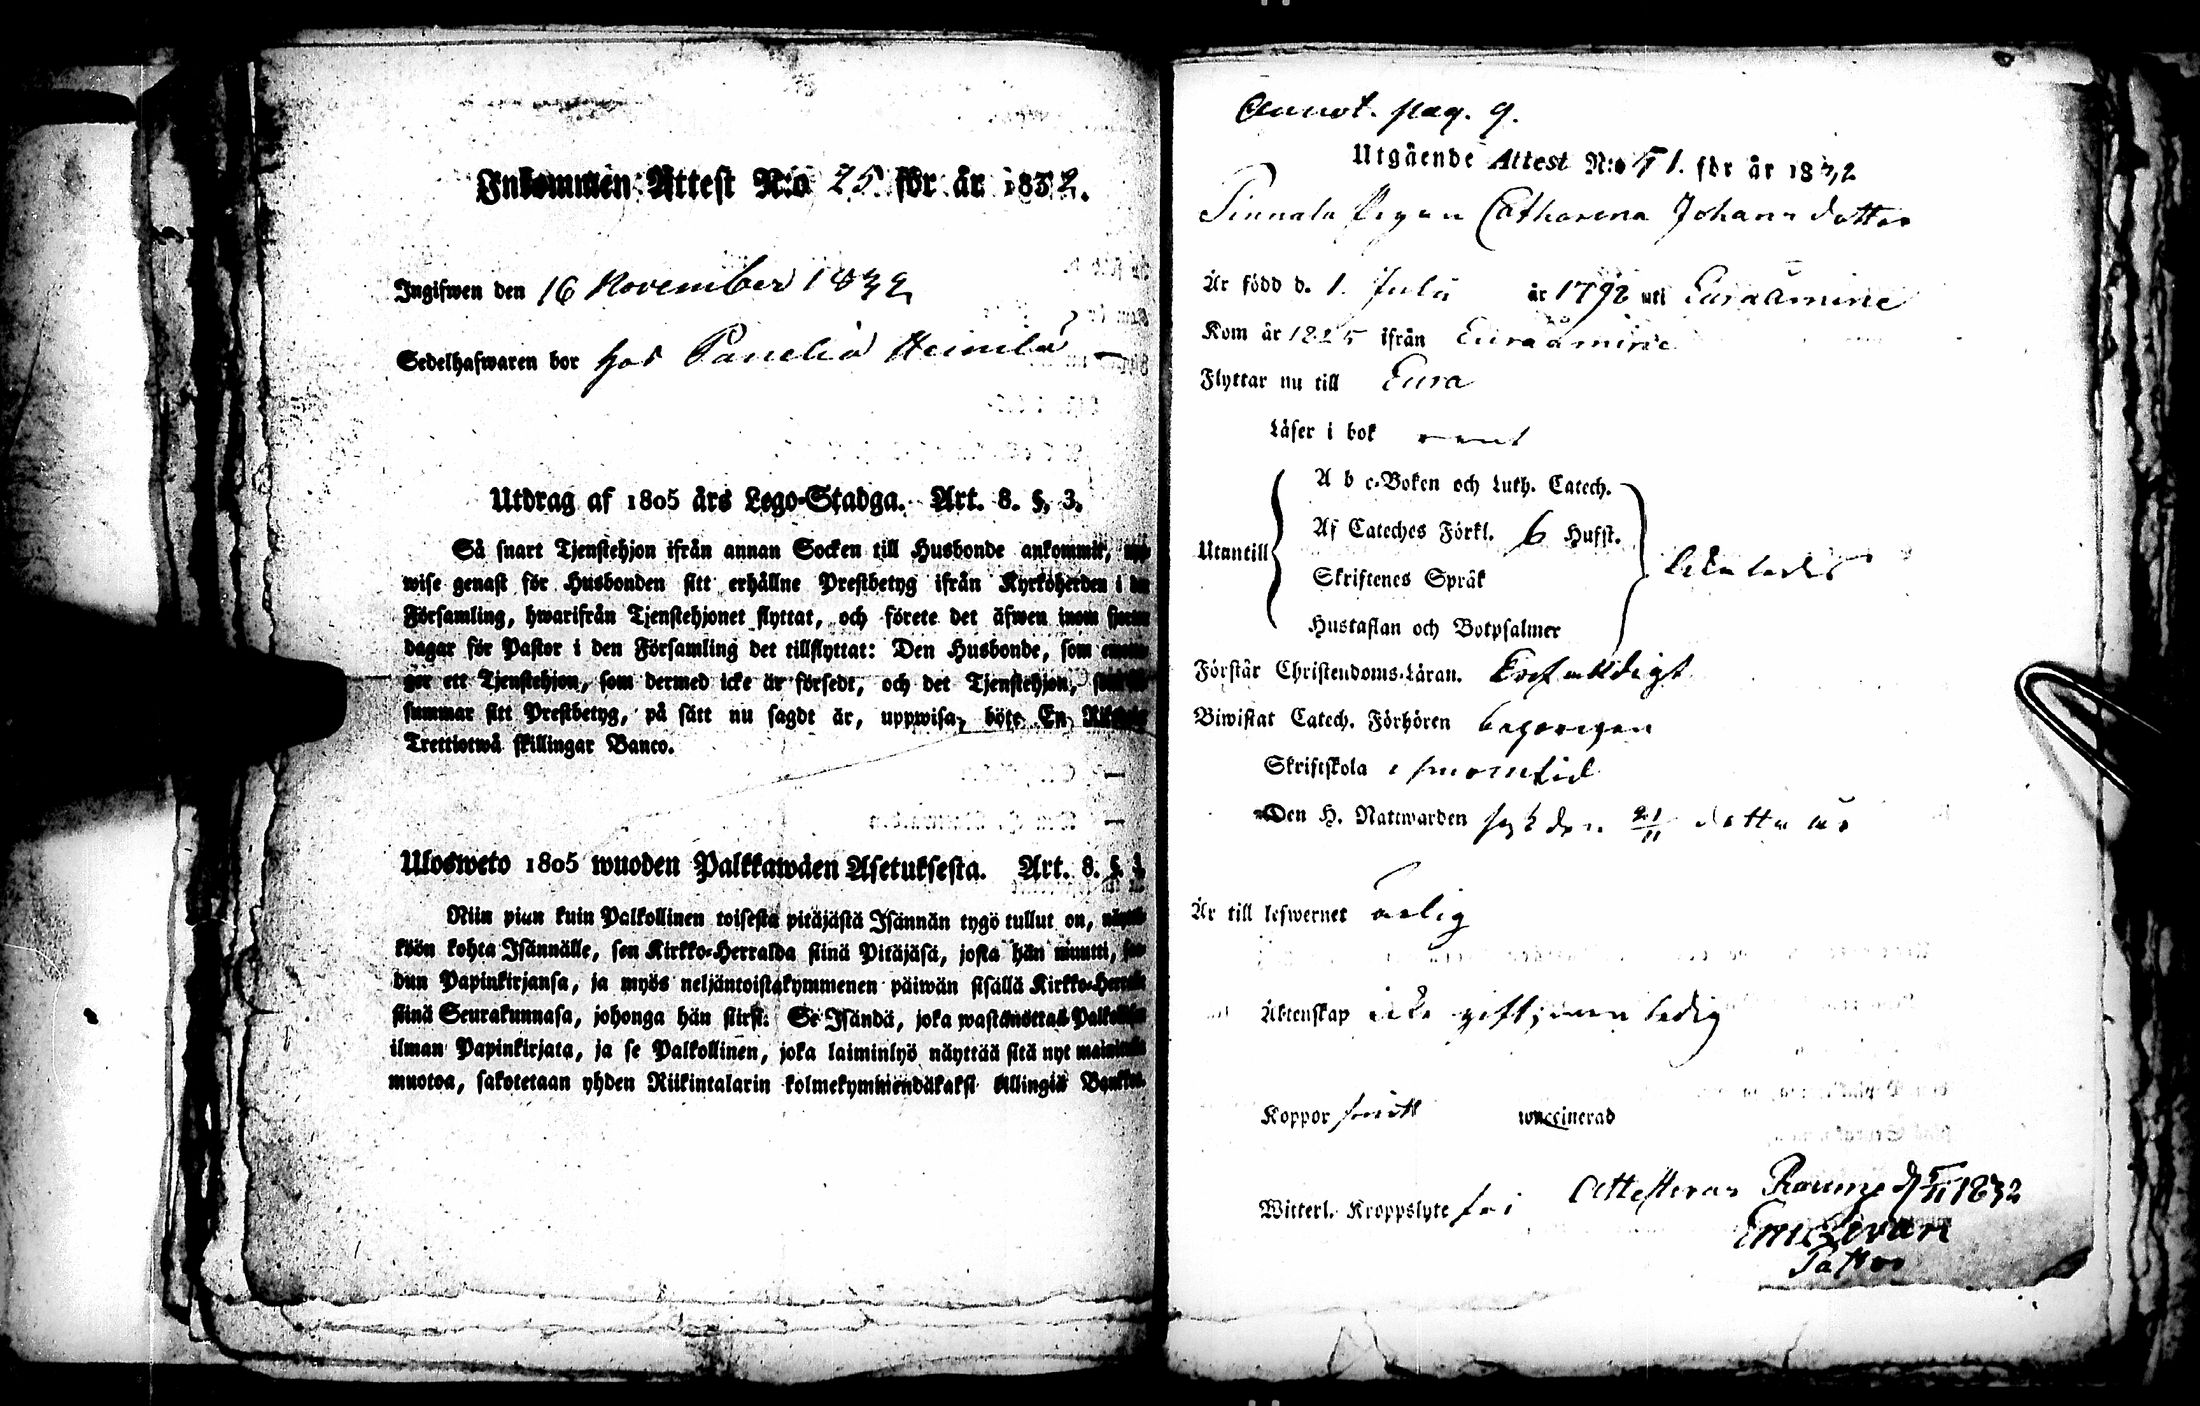 Inkommen Attest N:o 25. för år 1832.
Ingifwen den 16 November 1832
Sedelhafwaren bor hos Panelia Heinilä
Utdrag af 1805 års Lego-Stadga. Art. 8. §. 3.
Så snart Tjenstehjon ifrån annan Socken till Husbonde ankommit,
wise genast för Husbonden sitt erhållne Prestbetyg ifrån Kyrkoherden i
Församling, hwarifrån Tjenstehjonet flyttat, och förete det äfwen inom
dagar för Pastor i den Församling det tillflyttat: Den Husbonde, som
ger ett Tjenstehjon, som dermed icke är försedt, och det Tjenstehjon,
summar sitt Prestbetyg, på sätt nu sagdt är, uppwisa, böte En
Trettiotwå skillingar Banco.
Ulosweto 1805 wuoden Palkkawäen Asetuksesta. Art. 8. §. 3.
Niin pian kuin Palkollinen toisesta pitäjästä Isännän tygö tullut on,
köön kohta Isännälle, sen Kirkko-Herralda siinä Pitäjäsä, josta hän muutti,
dun Papinkirjansa, ja myös neljäntoistakymmenen päiwän sisällä Kirkko-Herralle
siinä Seurakunnasa, johonga hän siirst. Se Isändä, joka wastanottaa
ilman Papinkirjata, ja se Palkollinen, joka laiminlyö näyttää sitä nyt
muotoa, sakotetaan yhden Riikintalarin kolmekymmendäkaksi killingiä
Annot. pag. 9.
Utgående Attest N:o 51. för år 1832
Pigan Catharina Johansdotter
Är född d. 1. Julii år 1792 uti Euraåminne
Kom år 1825 ifrån Euraåminne
Flyttar nu till Eura
Läser i bok rent
A b c-Boken och Luth. Catech.
Af Cateches Förkl. 6 Hufst.
Utantill Likaledes
Skriftenes Språk
Hustaflan och Botpsalmer
Förstår Christendoms-Läran. Enfaldigt
Biwistat Catech. Förhören
Skriftskola i sinom tid
Den H. Nattwarden sist den 21/11 detta år
Är till lefwernet ärlig
Äktenskap icke gift, men ledig
Koppor haft waccinerad
Witterl. Kroppslyte fri Attesteras 1832
Pastor